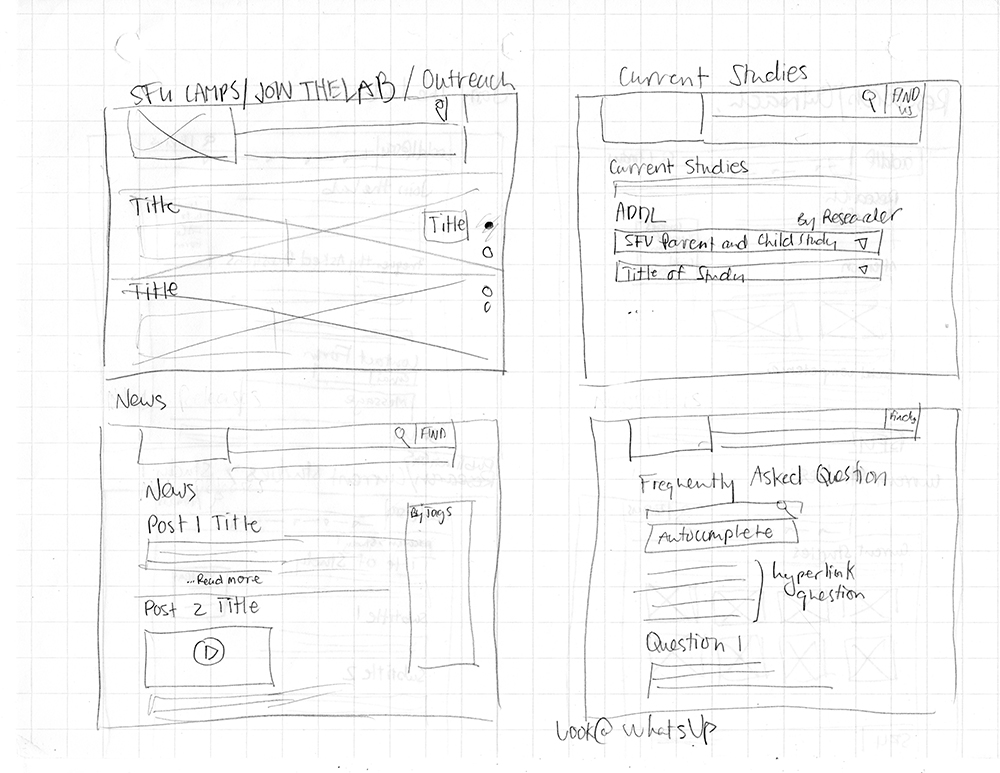 SFU CAMPS/JOIN THE LAB / Outreach
Title
Title
Title
Current Studies
FIND US
Current Studies
ADDL
By Researcher
SFU Parent and Child Study
Title of Study
...
News
FIND
News
Post 1 Title
...Read more
Post 2 Title
By Tags
Find us
Frequently Asked Question
Autocomplete
hyperlink
question
Question 1
Look@ WhatsUp